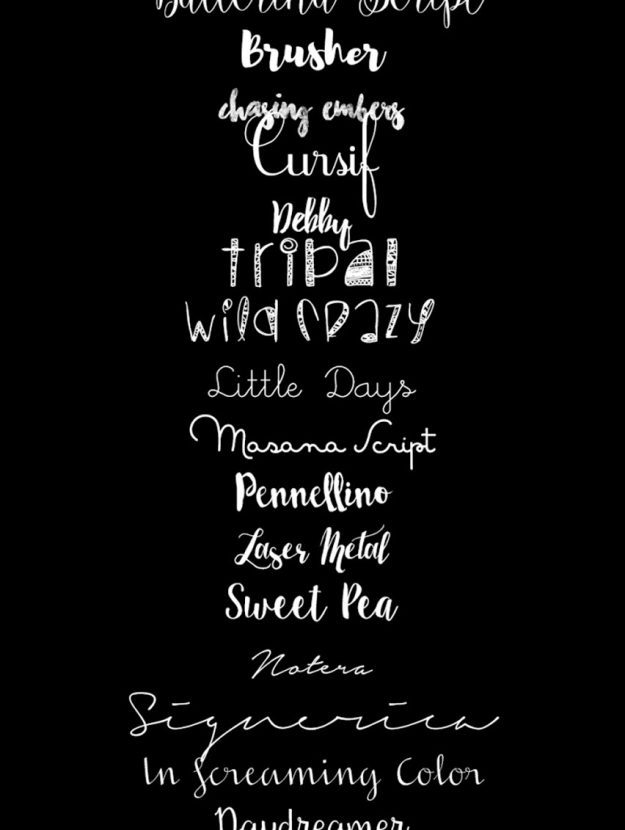 Ballerina Script
Brusher
chasing embers
Cursif
Debby
tribal
wild crazy
Little Days
Masana Script
Pennellino
Laser Metal
Sweet Pea
Notera
Signerica
In Screaming Color
Daydreamer